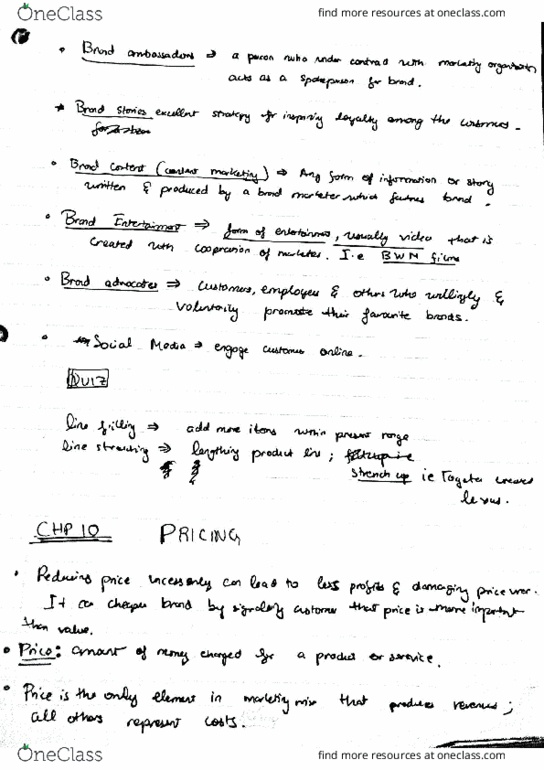 OneClass
find more resources at oneclass.com
• Brand ambassadors ⇒ a person who under contract with marketing organization
acts as a spokeperson for brand.
* Brand Stories excellent strategy for inspiring loyalty among the customers.
• Brand content (content marketing) ⇒ Any form of information or story
written & produced by a brand marketer which features brand.
• Brand Entertainment ⇒ form of entertainment, usually video that is
created with cooperation of marketer. I.e BWM films
• Brand advocates ⇒ customers, employees & others who willingly &
voluntarily promote their favourite brands.
• Social Media ⇒ engage customer online.
QUIZ
line filling ⇒ add more items within present range
line stretching ⇒ lengthing product line;
Strench up ie Toyota created
lexus.
CHP 10 PRICING
• Reducing price can lead to less profits & damaging price war.
It can cheapen brand by signaling customer that price is more important
than value.
• Price: amount of money charged for a product or service.
• Price is the only element in marketing mix that produces revenues;
all others represent costs.
OneClass
find more resources at oneclass.com